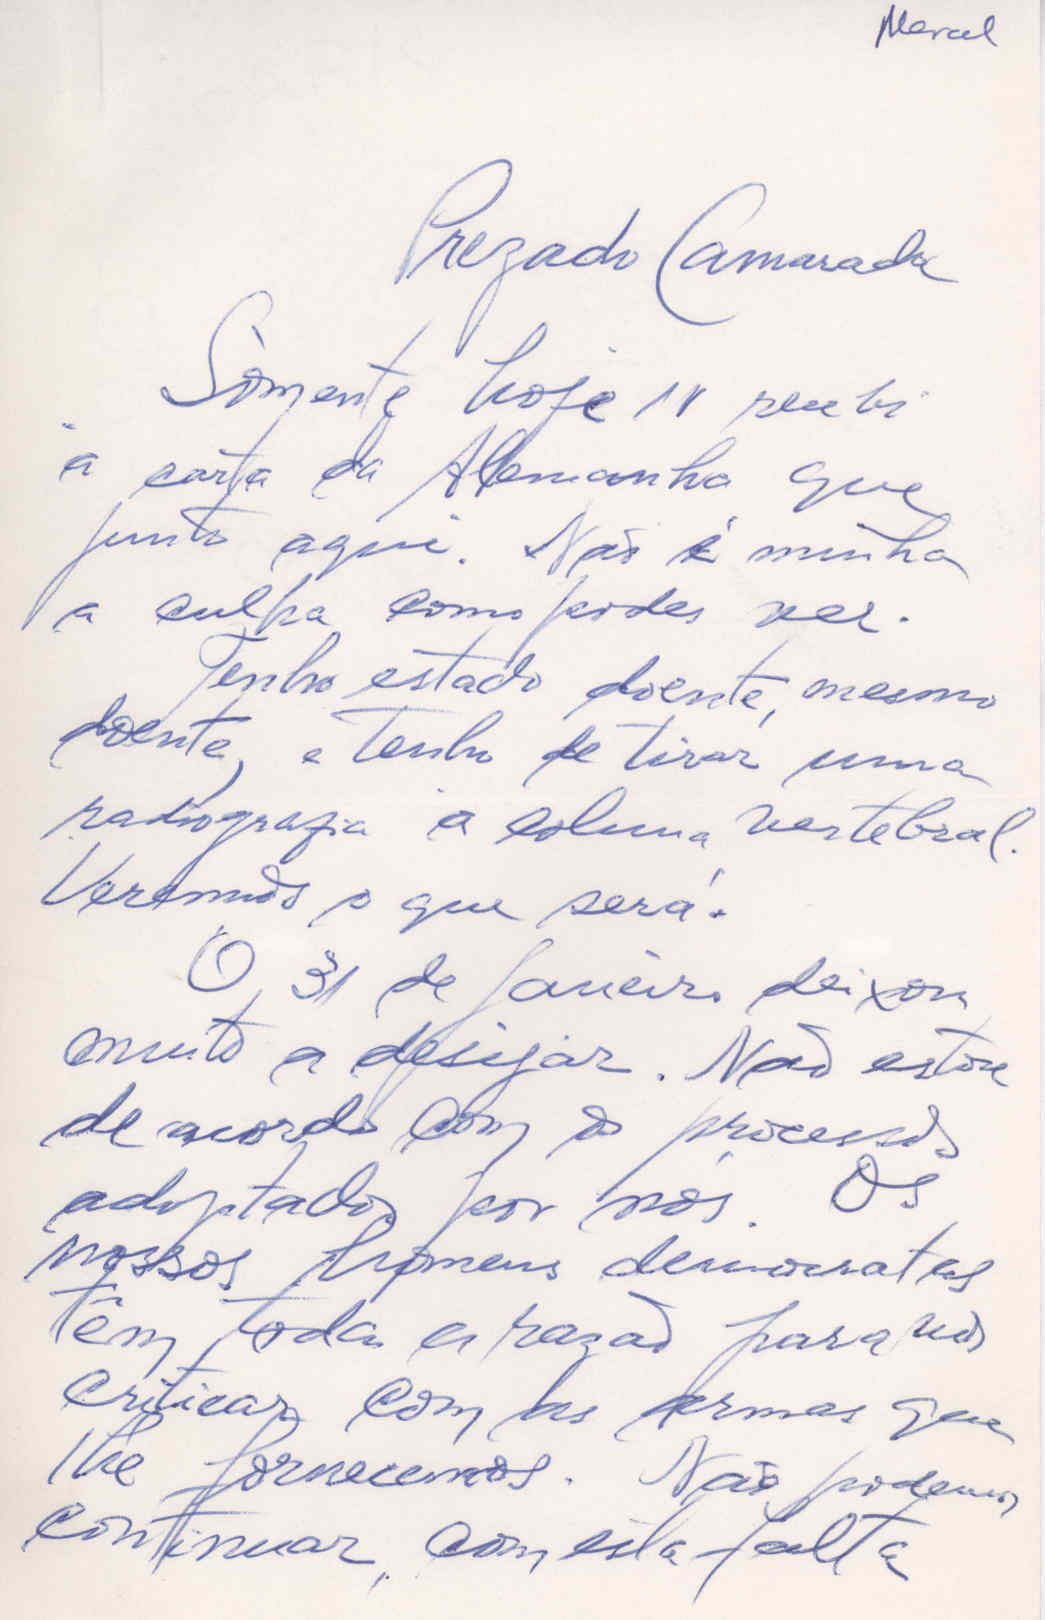 Marcel
Prezado Camarada
Sòmente hoje 11 recebi
a carta da Alemanha que
junto aqui. Não é minha
a culpa como podes ver.
Tenho estado doente, mesmo
doente, e tenho de tirar uma
radiografia à coluna vertebral.
Veremos o que será.
O 31 de Janeiro deixou
muito a desejar. Não estou
de acordo com os processos
adoptados por nós. Os
nossos homens democratas
têm toda a razão para nos
criticar com as armas que
lhe fornecemos. Não podemos
continuar, com esta falta